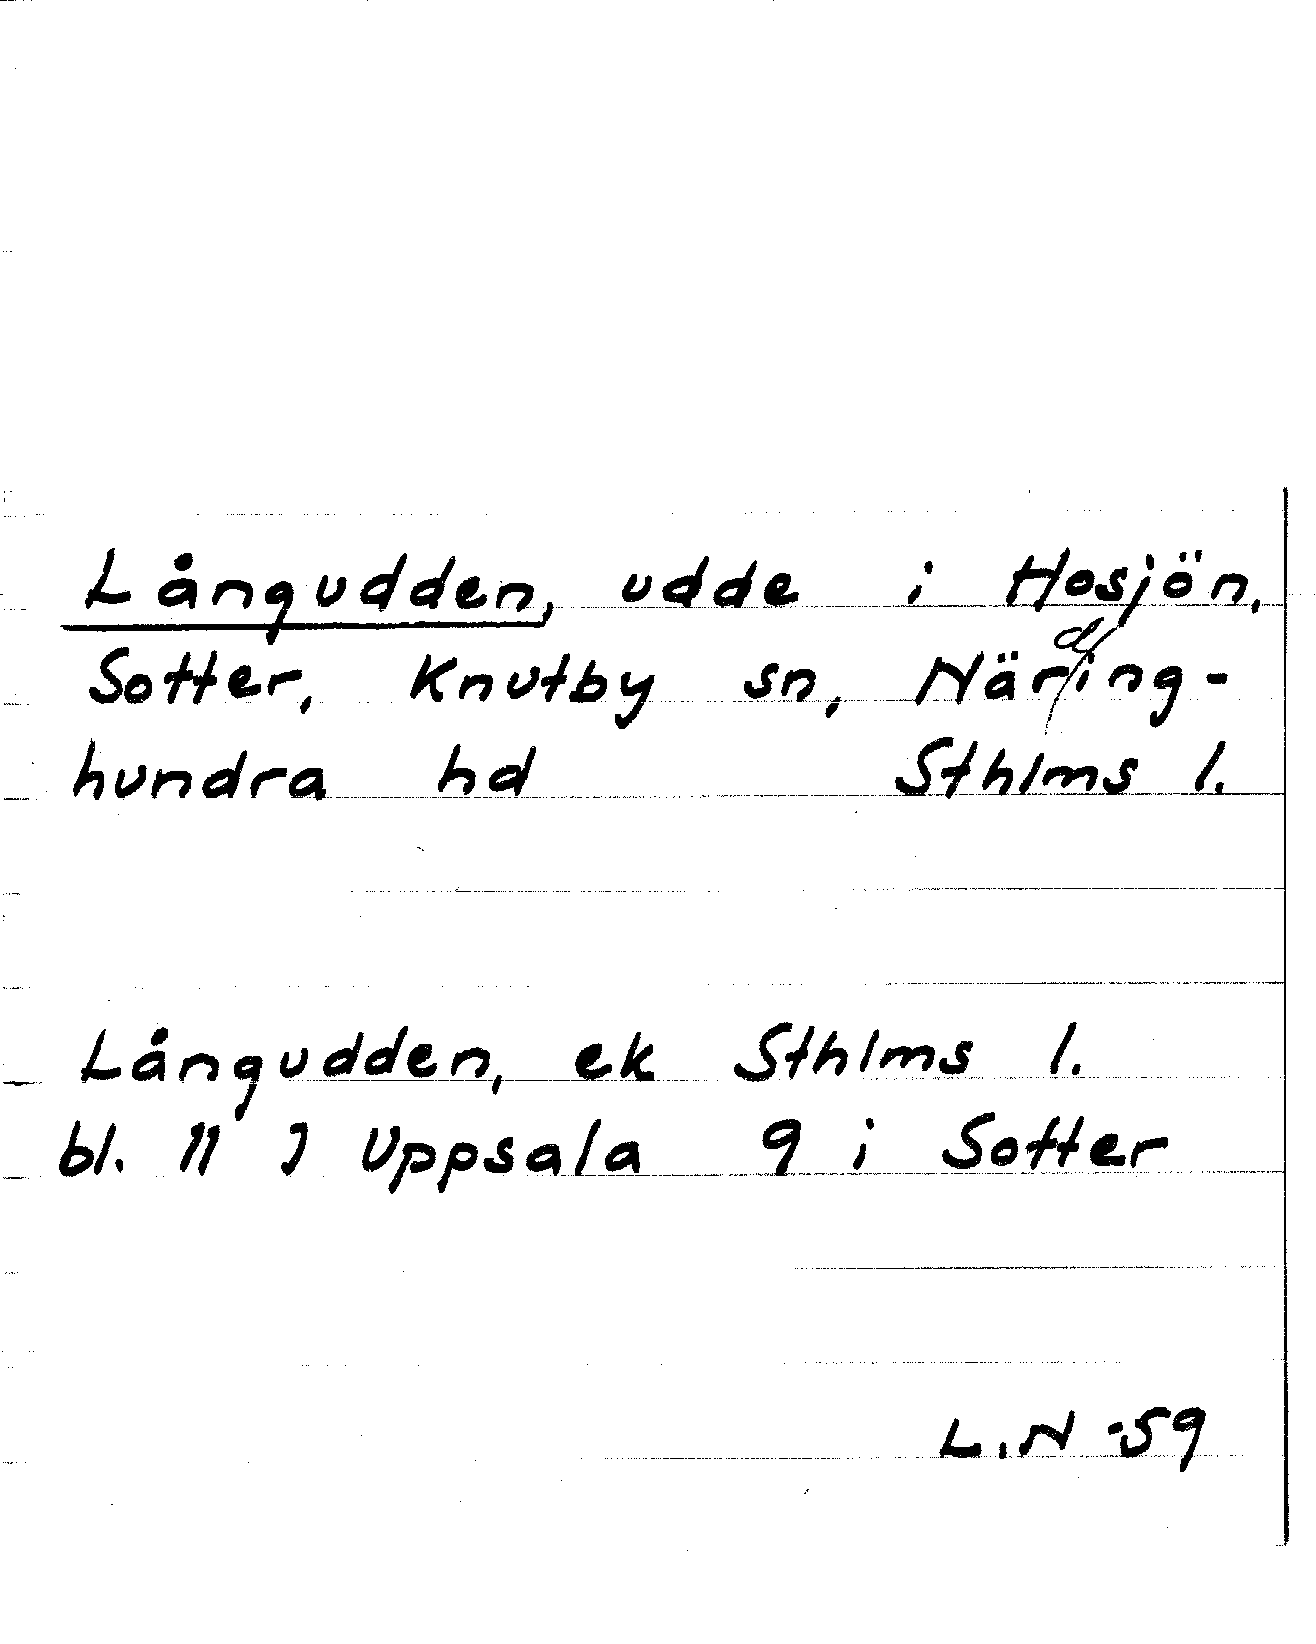 Långudden, udde i Hosjön,
Sotter, Knutby sn, Närding-
hundra hd Sthlms l.
Långudden, ek Sthlms l.
bl. 11 J Uppsala 9 i Sotter
L.N -59